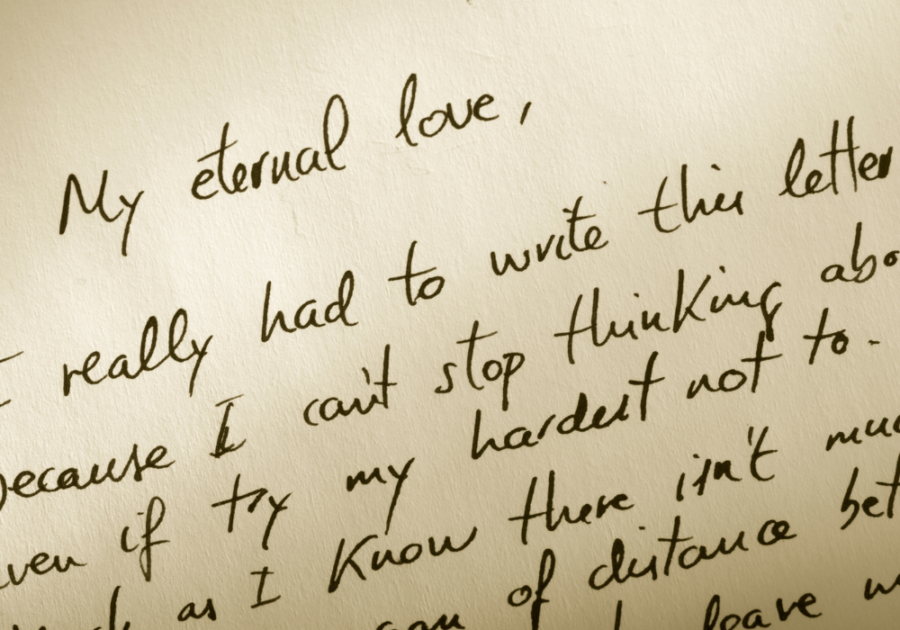 My eternal love,
I really had to write this letter
because I can't stop thinking abo
even if try my hardest not to.
as I know there isn't muc
of distance bet
leave w